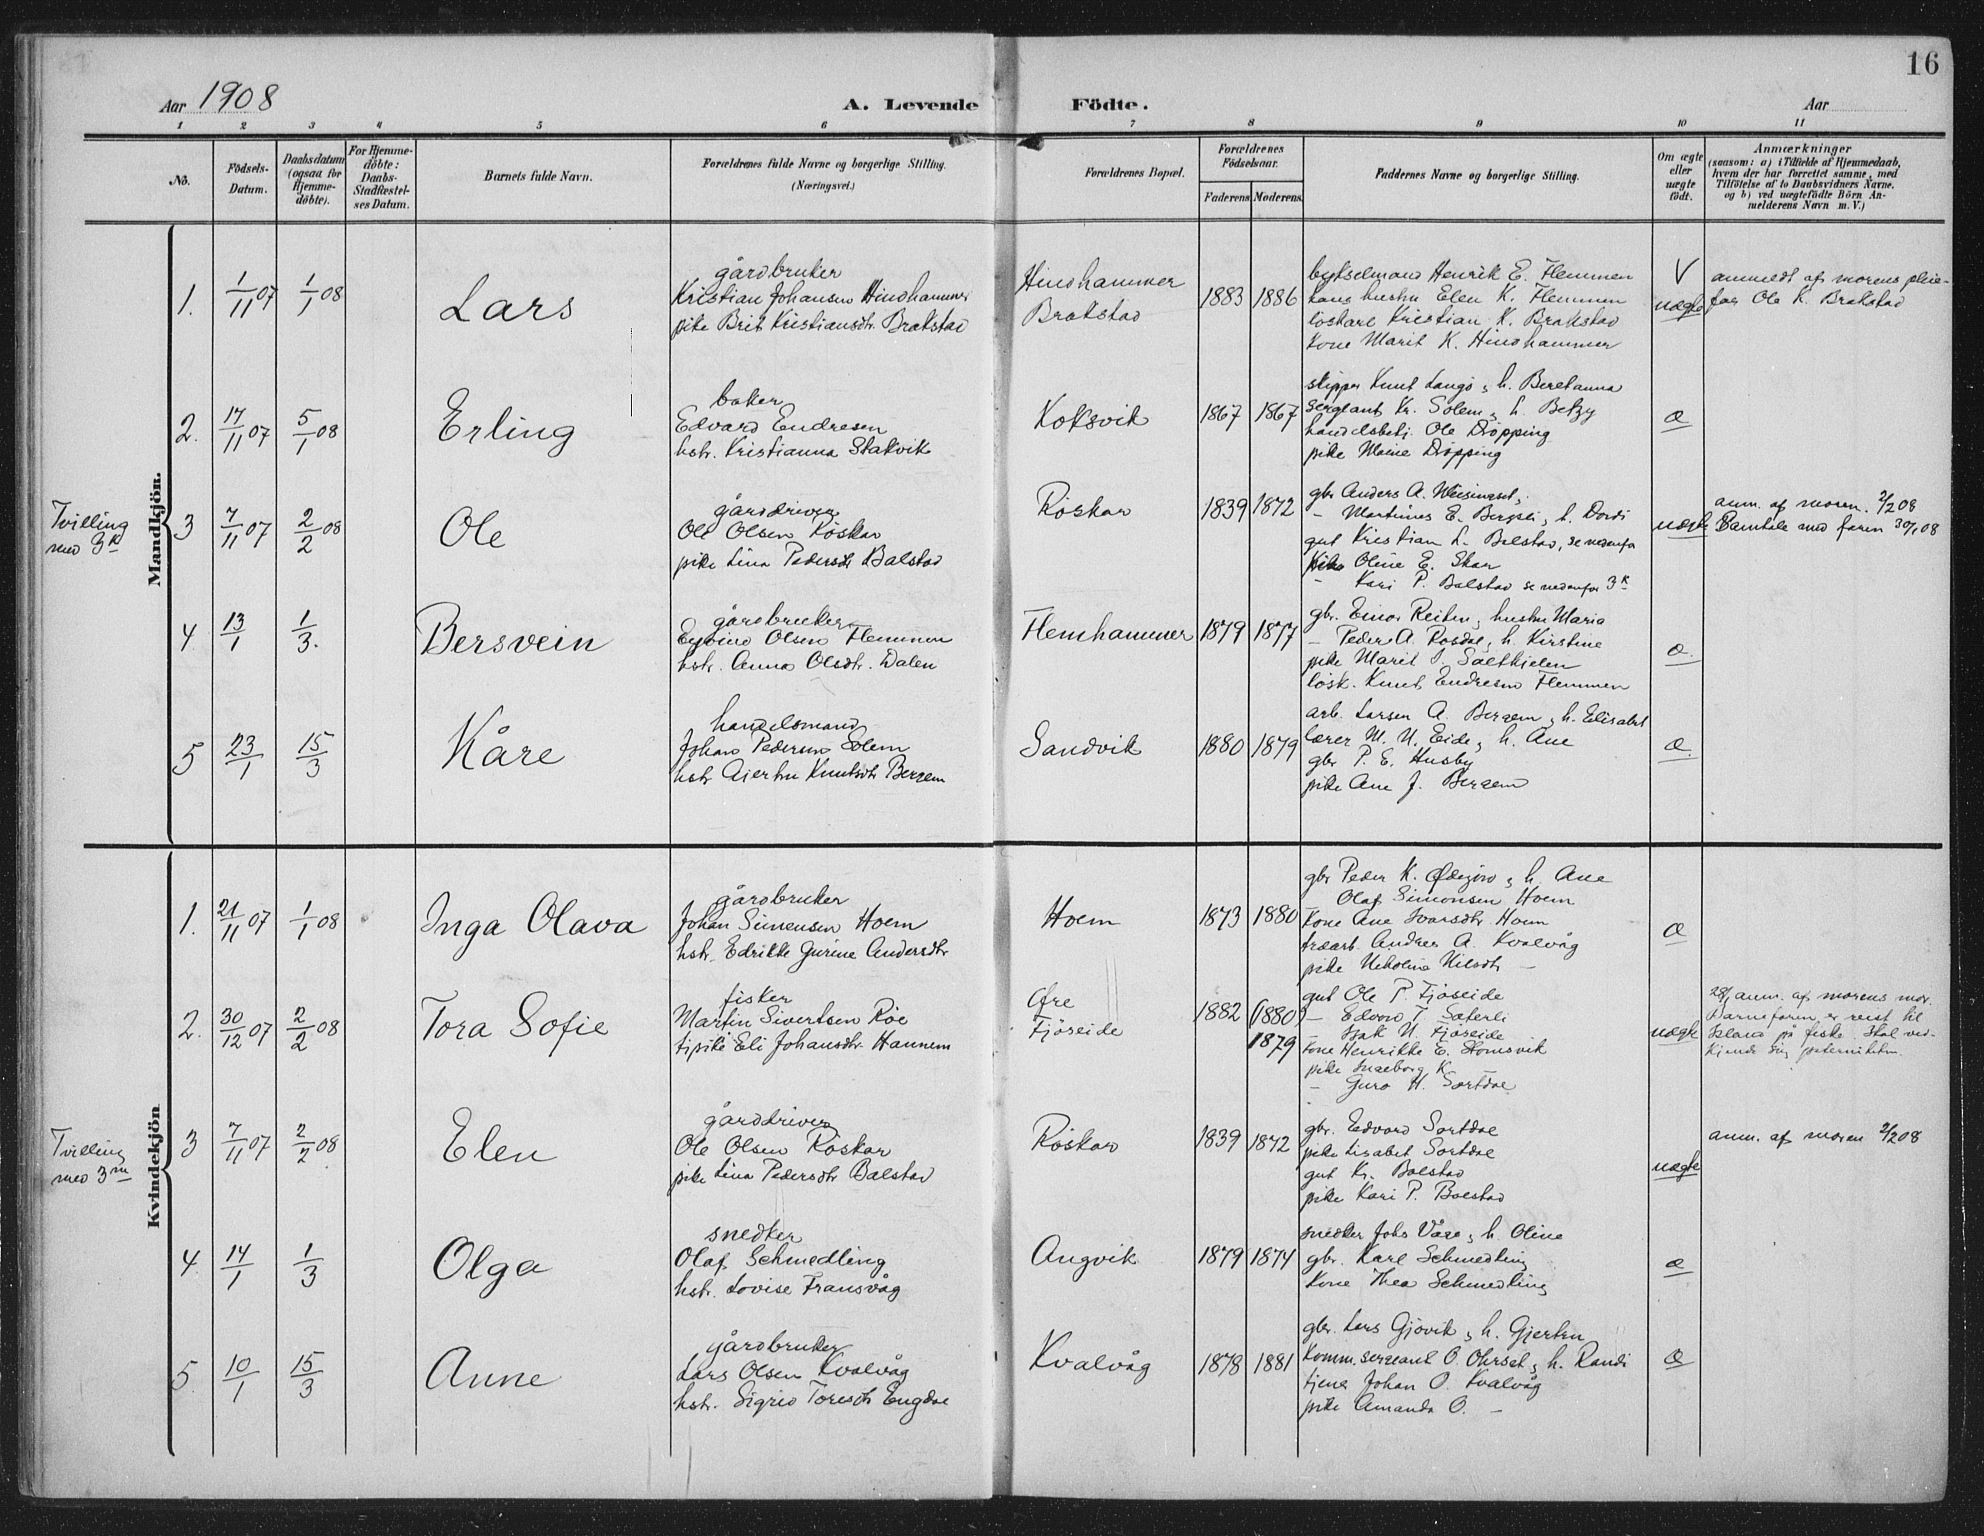 16
Aar 1908
A. Levende Födte.
Aar
1 2 3 4 5 6 7 8 9 10 11
No.
Födsels-Datum.
Daabsdatum (ogsaa for Hjemme-döbte).
For Hjemme-döbte: Daabs-Stadfæstel-ses Datum.
Barnets fulde Navn.
Forældrenes fulde Navne og borgerlige Stilling.
(Næringsvei.)
Forældrenes Bopæl.
Forældrenes Födselsaar.
Faderens. Moderens.
Faddernes Navne og borgerlige Stilling.
Om ægte eller uægte födt.
Anmærkninger
(saasom: a) i Tilfælde af Hjemmedaab,
hvem der har forrettet samme, med
Tilföielse af to Daabsvidners Navne.
og b) ved uægtefödte Börn An-
melderens Navn m. V.)
Mandkjön.
1. 1/11 07 1/1 08 Lars
gårdbruker
Kristian Johansen Hindhammer
pike Brit Kristiansdtr. Brakstad
Hindhammer
Brakstad
1883 1886
bykselmand Henrik E. Flemmen
hans hustru Elen K. Flemmen
löskarl Kristian K. Brakstad
Kone Marit K. Hindhammer
V
uægte
anmeldt af morens pleie-
far Ole K. Brakstad
2. 17/11 07 5/1 08 Erling
baker
Edvard Endresen
hstr. Kristianna Stakvik
Koksvik
1867 1867
skipper Knut Langö, h. Beretanna
sergeant Kr. Solem, h. Betzy
handelsbetj. Ole Dröpping
pike Maine Dröpping
æ
Tvilling
med 3 K
3 7/11 07 2/2 08 Ole
gårddriver
Ole Olsen Röskar
pike Lina Pedersdtr Balstad
Röskar
1839 1872
gbr Anders A.
– Martinus E. Bergsli, h. Dordi
gut Kristian L. Balstad, se nedenfor
pike Oline E. Skar
– Kari P. Balstad se nedenfor 3 K
uægte
anm. af moren. 2/2 08
Samtale med faren 30/1 08
4 13/1 1/3. Bersvein
gårdbruker
Eyvind Olsen Flemmen
hstr. Anna Olsdtr. Dalen
Flemhammer
1879 1877
gbr. Einar Reiten, hustru Maria
– Peder A. Rosdal, h. Kirstine
pike Marit P. Saltkjelen
lösk. Knut Endresen Flemmen
æ.
5 23/1 15/3 Kåre
handelsmand
Johan Pedersen Solem
hstr Gjertru Knutsdtr Bergem
Sandvik
1880 1879
arb. Larsen A. Bergem, h. Elisabet
lærer M. N. Eide, h. Ane
gbr P. E. Husby
pike Ane J. Bergem
æ.
Kvindekjön
1. 21/11 07 1/1 08 Inga Olava
gårdbruker
Johan Simensen Hoem
hstr. Edrikke Gurine Andersdtr
Hoem
1873 1880
gbr Peder K. Ödegård, h. Ane
Olaf Simonsen Hoem
Kone Ane Ivarsdtr Hoem
træarb. Anders A. Kvalvåg
pike Nikolina Nilsdtr –
æ
2. 30/12 07 2/2 08 Tora Sofie
fisker
Martin Sivertsen Röe
tjpike Eli Johansdtr. Hannem
Öfre
Fjöseide
1882 (1880)
1879
gut Ole P. Fjöseide
– Edvard T. Sæterli
– Isak N. Fjöseide
Kone Henrikke E. Stomsvik
pike Ingeborg K.
– Guro H. Sortdal
uægte
28/1 anm. af morens mor.
Barnefaren er reist til
Island på fiske. Skal ved-
kjende sig paterniteten
Tvilling
med 3 m
3 7/11 07 2/2 08 Elen
gårddriver
Ole Olsen Röskar
pike Lina Pedersdtr Balstad
Röskar
1839 1872
gbr. Edvard Sortdal
pike Lisabet Sortdal
gut Kr. Balstad
pike Kari P. Balstad
uægte
anm. af moren 2/2 08
4. 14/1 1/3 Olga
snedker
Olaf Schmedling
hstr. Lovise Fransvåg
Angvik
1879 1874
snedker Johs Våge, h. Oline
gbr. Karl Schmedling
Kone Thea Schmedling
æ
5. 10/1 15/3 Anne
gårdbruker
Lars Olsen Kvalvåg
hstr. Sigrid Toresdtr Engdal
Kvalvåg
1878 1881
gbr. Lars Gjövik, h. Gjertru
Komm.sergeant O. Ohrset, h. Randi
tjener Johan O. Kvalvåg
pike Amanda O. –
æ